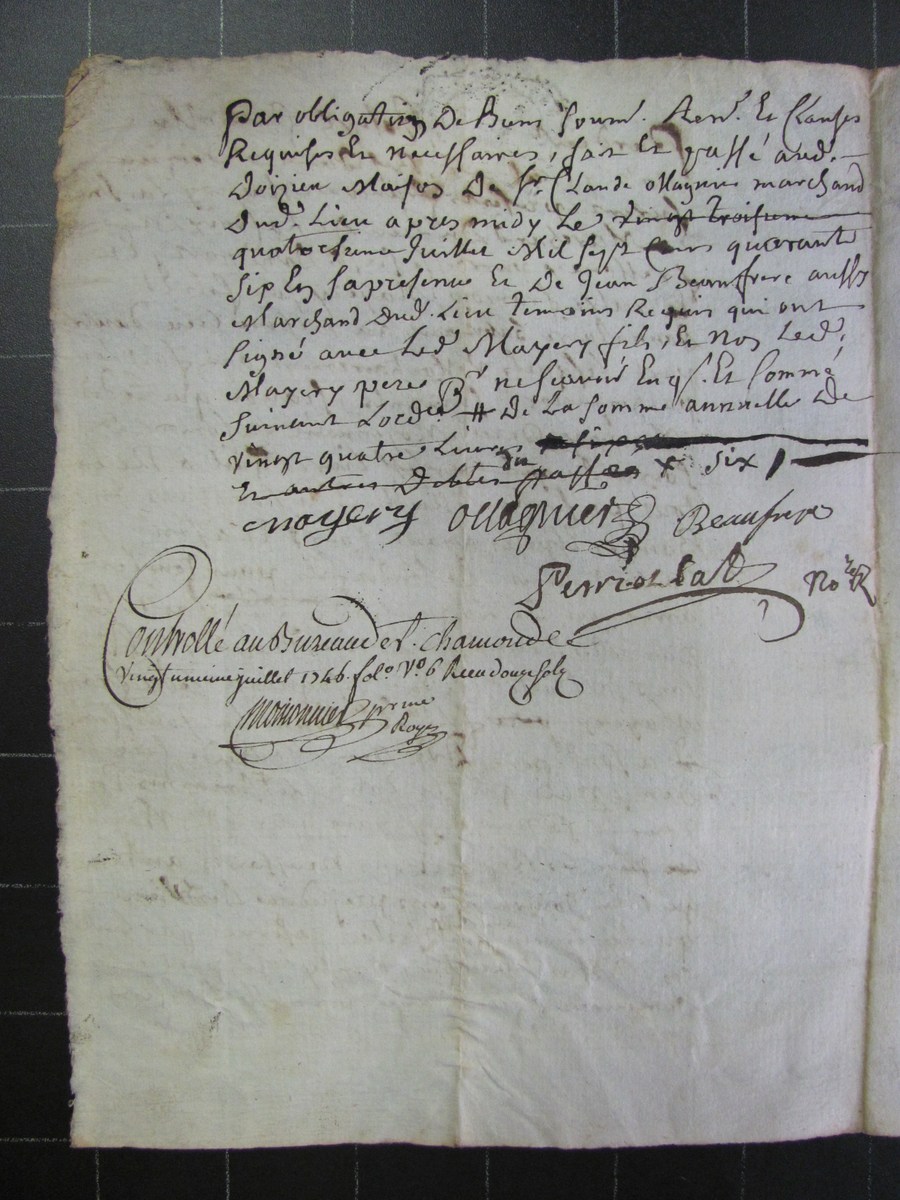 Par obligation De Biens soum. Ren. Et Clauses
Requises Et necessaires, fait Et passé aud.
Doizieu Maison De Sr. Claude ollagnier marchand
Dud. Lieu apres midy Le vingt troisieme
quatorzieme Juillet Mil sept Cens quarante
six En sa presence Et De Jean Beaufrere aussy
Marchand Dud. Lieu temoins Requis qui ont
signé avec Led. Mayery fils, Et non Led.
Mayery pere ne scavoir Enqs. Et sommé
suivant Lord. # De La somme annuelle De
vingt quatre Livres
Et autres Debtes passées x six
mayery ollagnier Beaufrere
Perriolat Nore R
Controllé au Bureau de St. chamond le
vingt unieme juillet 1746. fol. Vo. 6 Receu douze sols